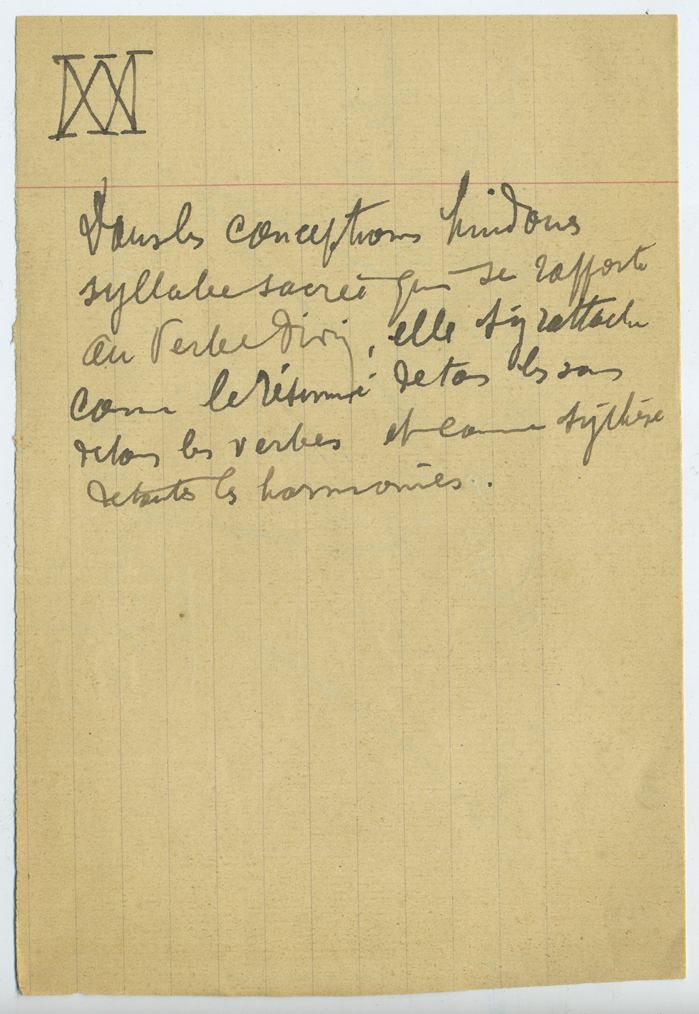 XXI
Dans les conceptions hindoues
syllabe sacrée qui se rapporte
au Verbe Divin, elle s'y rattache
comme le résumé de tous les sons
de tous les verbes et comme synthèse
de toutes les harmonies.